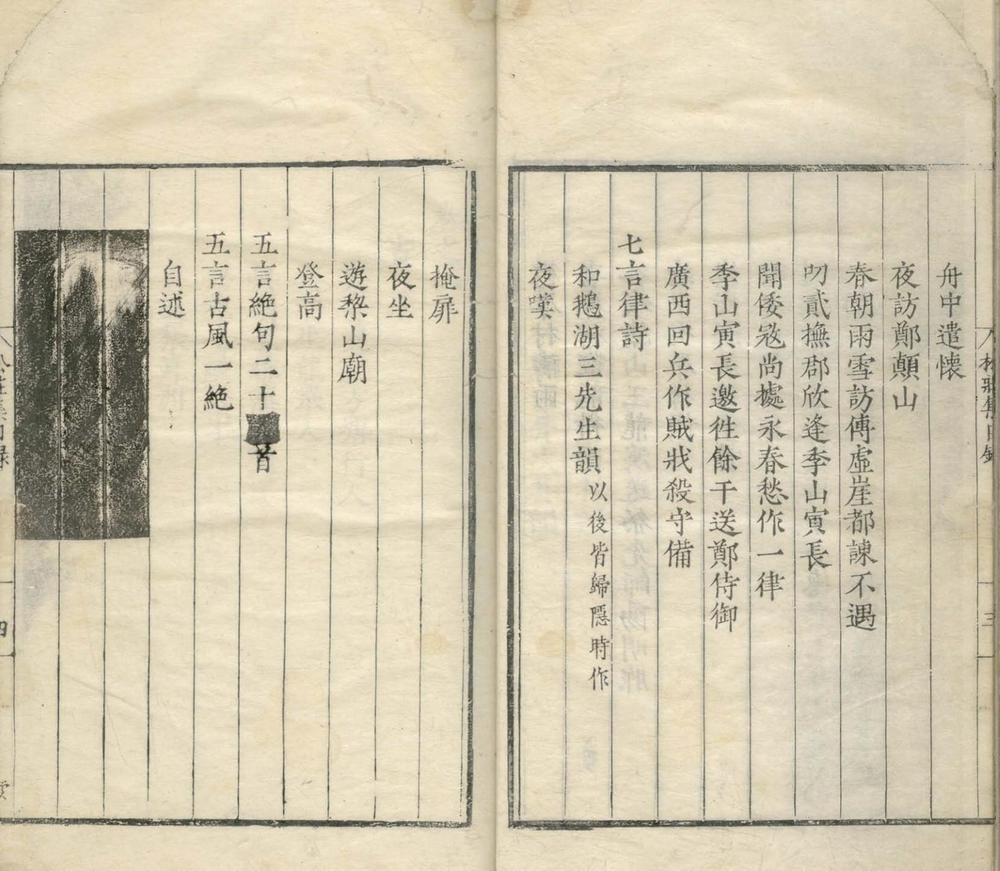 舟中遣懷
夜訪鄭顛山
春朝雨雪訪傅虛崖都諫不遇
叨貳撫郡欣逢李山寅長
聞倭寇尚據永春愁作一律
季山寅長邀徃餘干送鄭侍御
廣西回兵作賊戕殺守備
七言律詩
和鵝湖三先生韻以後皆歸隱時作
夜嘆
三
掩扉
夜坐
遊棃山廟
登高
五言絶句二十首
五言古風一絶
自述
四